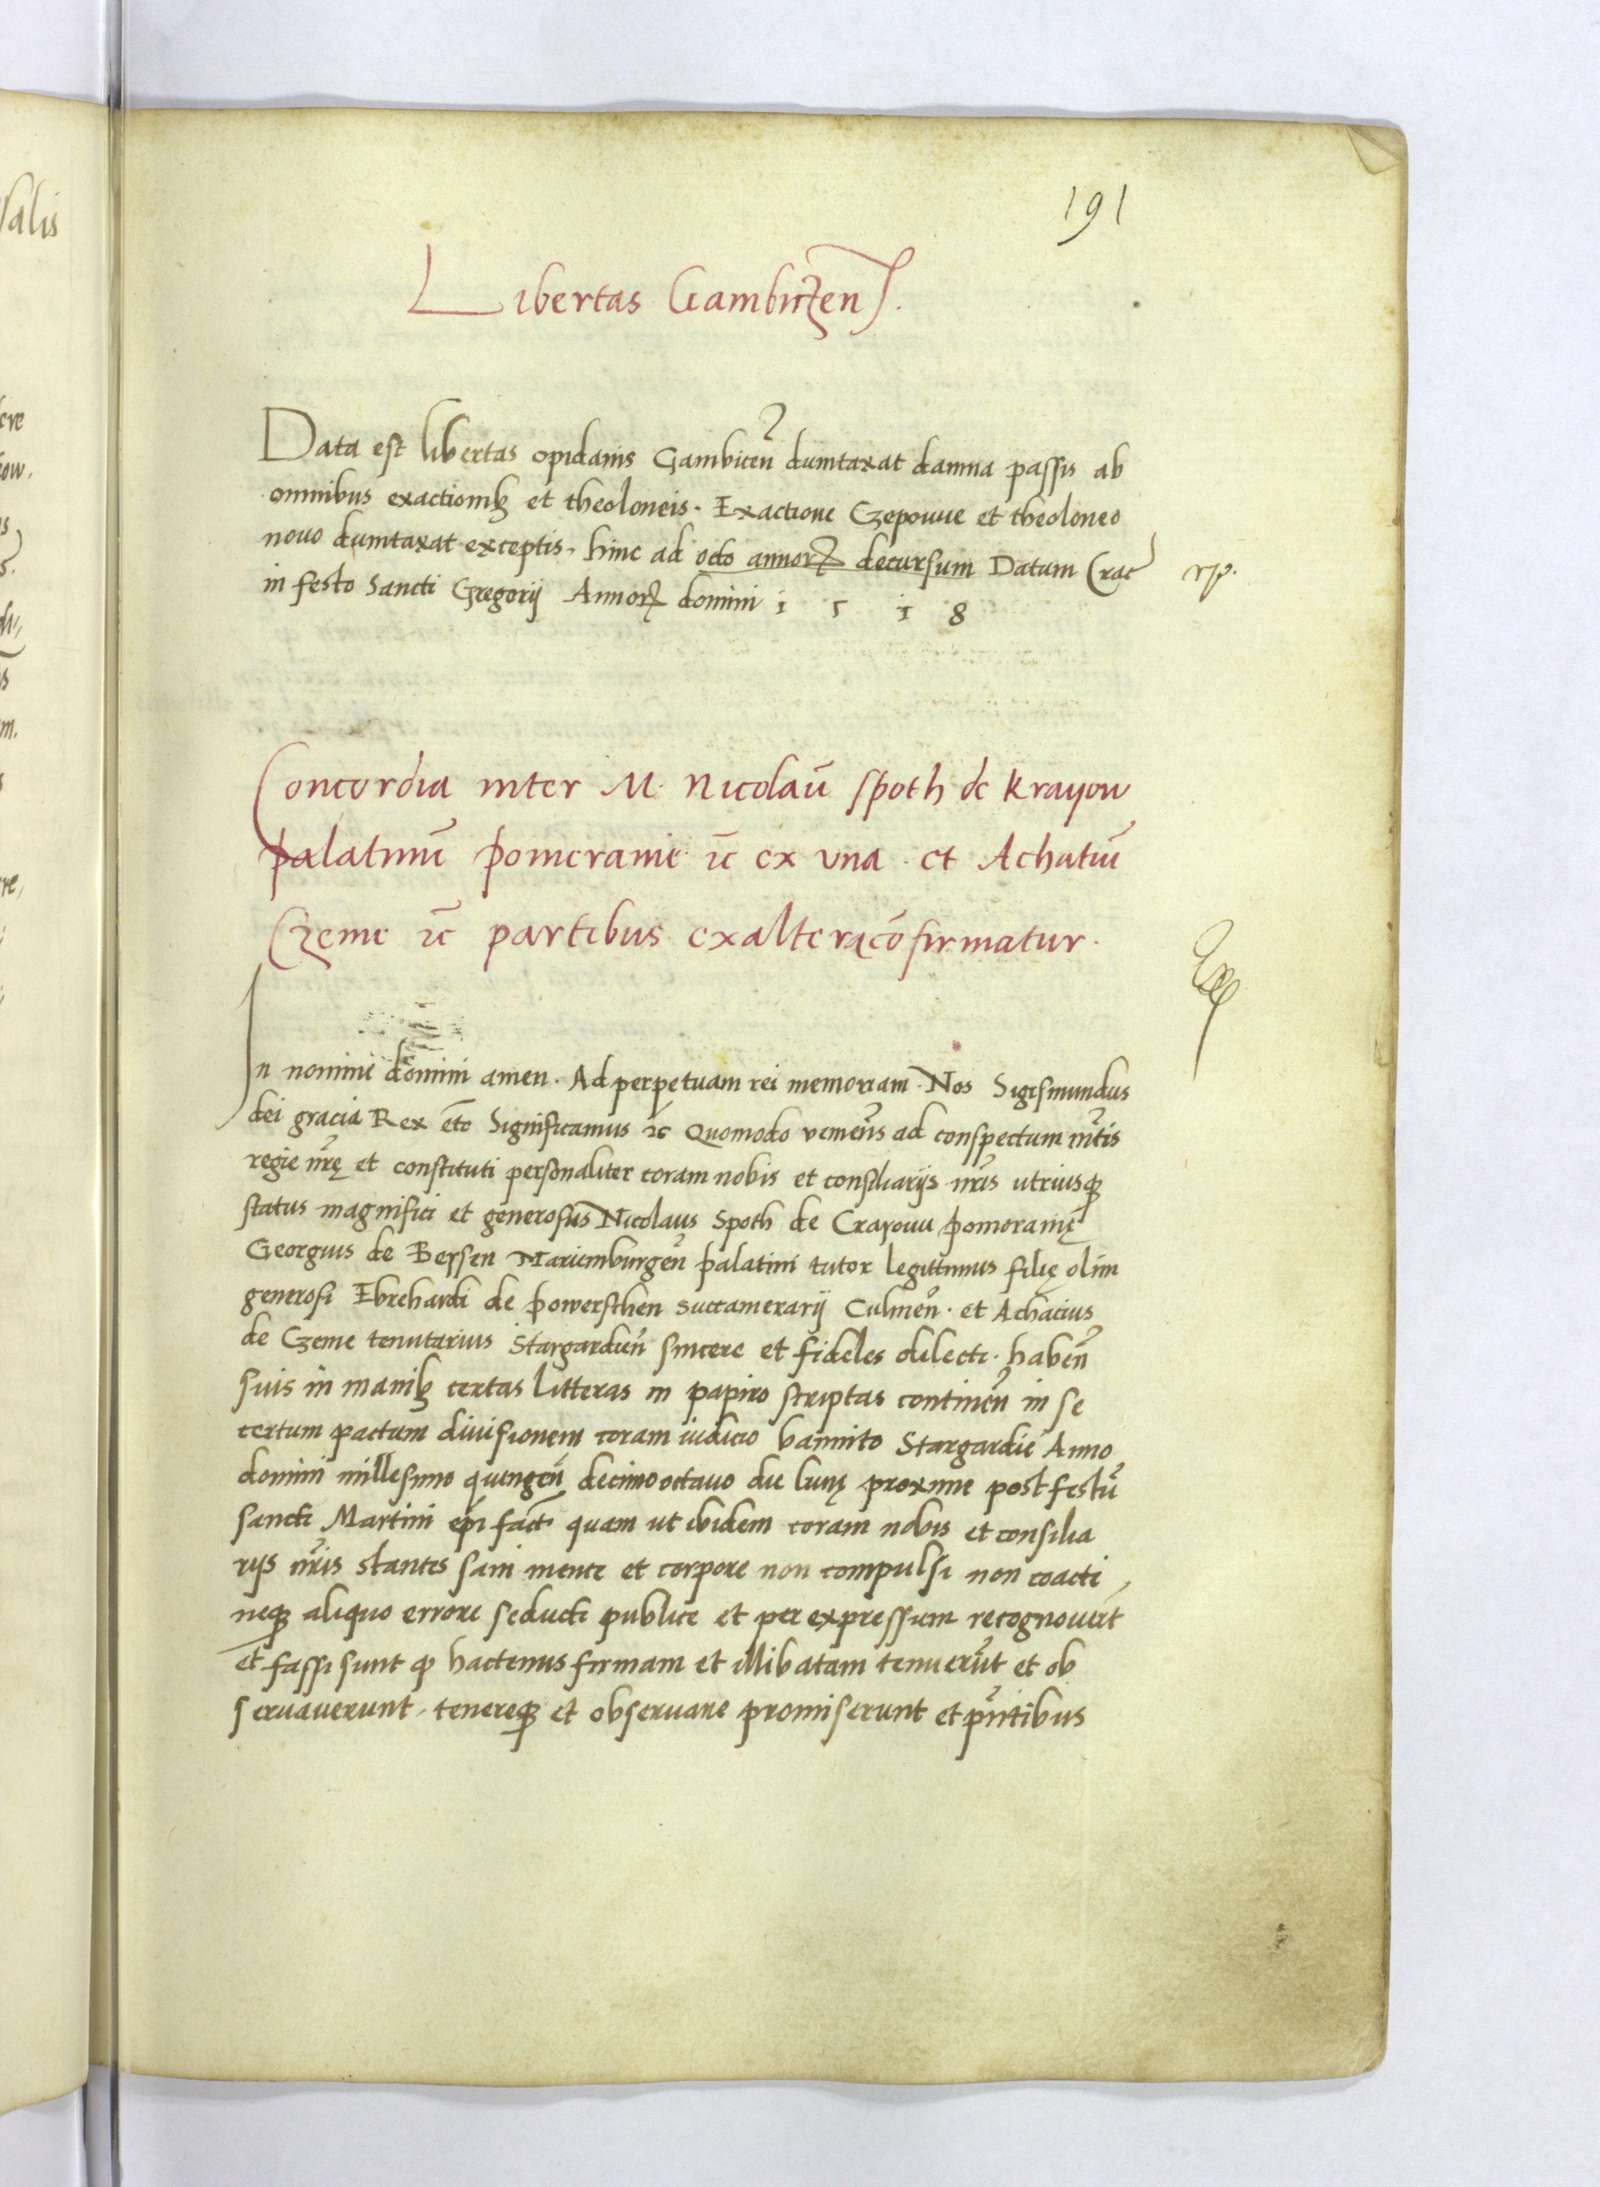 191
Libertas Gambiczen̄.
Data est libertas opidanis Gambicen̄ dumtaxat damna passis ab
omnibus exactionibꝫ et theoloneis. Exactione Czepowe et theoloneo
nouo dumtaxat exceptis. hinc ad octo annorꝝ decursum Datum Crac̄
in festo Sancti Gregorij Annorꝝ domini 1 5 1 8
Concordia inter M. Nicolaū Spoth de Krayow
palatinū pomeranie ⁊c̄ ex vna et Achatiū
Czeme ⁊c̄ partibus ex altera cōfirmatur.
In nomine domini amen. Ad perpetuam rei memoriam. Nos Sigismundus
dei gracia Rex etc̄ Significamus ⁊c̄ Quomodo veniens̄ ad conspectum mtis̄
regie nr̄ę et constituti personaliter coram nobis et consiliarijs nr̄is utriusqꝫ
status magnifici et generosus Nicolaus Spoth de Crayouu pomoranię
Georgius de Beysen Mariemburgen̄ palatini tutor legittimus filię olim
generosi Ebrehardi de powerschen succamerarij Culmen̄. et Achacius
de Czeme tenutarius Stargardien̄ sincere et fideles dilecti. haben̄
suis in manibꝫ certas litteras in papiro scriptas continen̄ in se
certum pactum diuisionem coram iudicio bannito Stargardie Anno
domini millesimo quingen̄ decimooctauo die lunę proxime post festū
sancti Martini ep̄i fact̄ quam ut ibidem coram nobis et consilia
rijs nr̄is stantes sani mente et corpore non compulsi non coacti
neqꝫ aliquo errore seducti publice et per expressum recognouer̄t
et fassi sunt ꝙ hactenus firmam et illibatam tenuerūt et ob
seruauerunt, tenereqꝫ et obseruare promiserunt et pn̄tibus